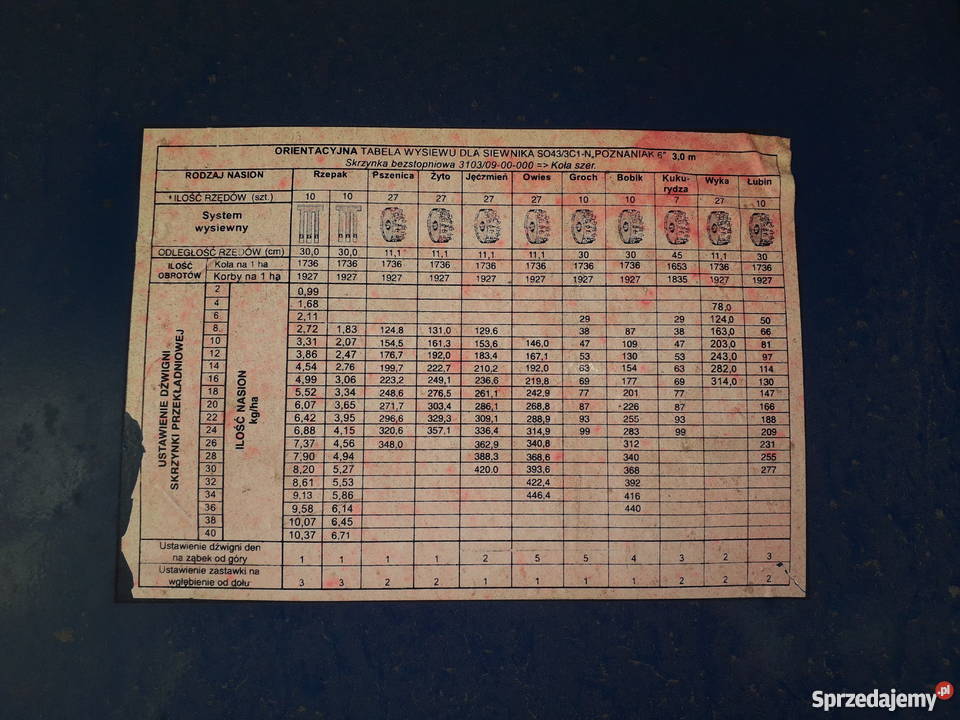 ORIENTACYJNA TABELA WYSIEWU DLA SIEWNIKA SO43/3C1-N„POZNANIAK 6" 3,0 m
Skrzynka bezstopniowa 3103/09-00-000 => Koła szer.
RODZAJ NASION Rzepak Pszenica Żyto Jęczmień Owies Groch Bobik Kuku-rydza Wyka Łubin
* ILOŚĆ RZĘDÓW (szt.) 10 10 27 27 27 27 10 10 7 27 10
System
wysiewny
ODLEGŁOŚĆ RZĘDÓW (cm) 30,0 30,0 11,1 11,1 11,1 11,1 30 30 45 11,1 30
ILOŚĆ OBROTÓW
Koła na 1 ha 1736 1736 1736 1736 1736 1736 1736 1736 1653 1736 1736
Korby na 1 ha 1927 1927 1927 1927 1927 1927 1927 1927 1835 1927 1927
USTAWIENIE DŹWIGNI
SKRZYNKI PRZEKŁADNIOWEJ
ILOŚĆ NASION
kg/ha
2 0,99
4 1,68 78,0
6 2,11 29 29 124,0 50
8 2,72 1,83 124,8 131,0 129,6 38 87 38 163,0 66
10 3,31 2,07 154,5 161,3 153,6 146,0 47 109 47 203,0 81
12 3,86 2,47 176,7 192,0 183,4 167,1 53 130 53 243,0 97
14 4,54 2,76 199,7 222,7 210,2 192,0 63 154 63 282,0 114
16 4,99 3,06 223,2 249,1 236,6 219,8 69 177 69 314,0 130
18 5,52 3,34 248,6 276,5 261,1 242,9 77 201 77 147
20 6,07 3,65 271,7 303,4 286,1 268,8 87 226 87 166
22 6,42 3,95 296,6 329,3 309,1 288,9 93 255 93 188
24 6,88 4,15 320,6 357,1 336,4 314,9 99 283 99 209
26 7,37 4,56 348,0 362,9 340,8 312 231
28 7,90 4,94 388,3 368,6 340 255
30 8,20 5,27 420,0 393,6 368 277
32 8,61 5,53 422,4 392
34 9,13 5,86 446,4 416
36 9,58 6,14 440
38 10,07 6,45
40 10,37 6,71
Ustawienie dźwigni den
na ząbek od góry 1 1 1 1 2 5 5 4 3 2 3
Ustawienie zastawki na
wgłębienie od dołu 3 3 2 2 1 1 1 1 2 2 2
Sprzedajemy.pl